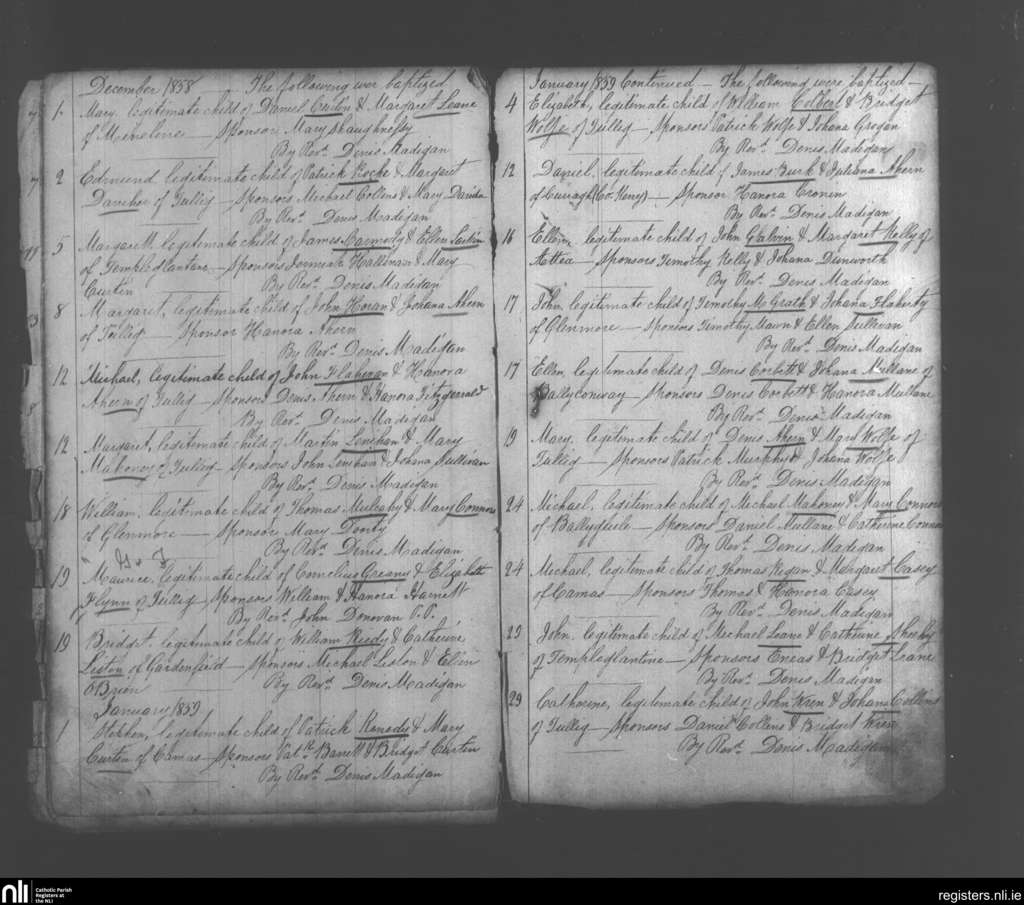 December 1858 — The following were baptized
1. Mary, legitimate child of Daniel Curtin & Margaret Leane
of Meenoline — Sponsor Mary Shaughnessy
By Revd. Denis Madigan
2 Edmund legitimate child of Patrick Roche & Margaret
of Tullig — Sponsors Michael Collens & Mary
By Revd. Denis Madigan
5 Margarett legitimate child of James & Ellen
of Templeglantine — Sponsors Jeremiah Hallinan & Mary
Curtin By Revd. Denis Madigan
8 Margaret, legitimate child of John Horan & Johana Ahern
of Tullig — Sponsor Hanora Ahern
By Revd. Denis Madigan
12 Michael, legitimate child of John & Hanora
Ahern of Tullig — Sponsors Denis Ahern & Hanora Fitzgerrald
By Revd. Denis Madigan
12 Margaret, legitimate child of Martin Lenihan & Mary
Mahoney of Tullig — Sponsors John Lenihan & Johana Sullivan
By Revd. Denis Madigan
18 William, legitimate child of Thomas Mulcahy & Mary Connors
of Glenmore — Sponsor Mary Doody
By Revd. Denis Madigan
19 Maurice, legitimate child of Cornelius Greany & Elizabeth
Flynn of Tullig — Sponsors William & Hanora Harnett
By Revd. John Donovan P.P.
19 Bridget, legitimate child of William Reedy & Catherine
Liston of Gardenfield — Sponsors Michael Liston & Ellen
OBrien By Revd. Denis Madigan
January 1859
1 Stephen, legitimate child of Patrick Kenedy & Mary
Curtin of Camas — Sponsors Patk. Barrett & Bridget Curtin
By Revd. Denis Madigan
January 1859 Continued — The following were baptized —
4 Elizabeth, legitimate child of William Colbert & Bridget
Wolfe of Tullig — Sponsors Patrick Wolfe & Johana Grogan
By Revd. Denis Madigan
12 Daniel, legitimate child of James Burk & Juliana Ahern
of Curragh (Co. Kerry) — Sponsor Hanora Cronin
By Revd. Denis Madigan
16 Ellen, legitimate child of John Galvin & Margaret Kelly of
Attea — Sponsors Timothy Kelly & Johana Dunworth
By Revd. Denis Madigan
17 John, legitimate child of Timothy McGrath & Johana Flaherty
of Glenmore — Sponsors Timothy & Ellen Sullivan
By Revd. Denis Madigan
17 Ellen, legitimate child of Denis Corbett & Johana Mullane of
Ballyconway — Sponsors Denis Corbett & Hanora Mullane
By Revd. Denis Madigan
19 Mary, legitimate child of Denis Ahern & Mary Wolfe of
Tullig — Sponsors Patrick Murphy & Johana Wolfe
By Revd. Denis Madigan
24 Michael, legitimate child of Michael Mahoney & Mary Connors
of Ballyguile — Sponsors Daniel Mullane & Catherine Connors
By Revd. Denis Madigan
24 Michael, legitimate child of Thomas Regan & Margaret Casey
of Camas — Sponsors Thomas & Hanora Casey
By Revd. Denis Madigan
29 John, legitimate child of Michael Leane & Catherine Sheehy
of Templeglantine — Sponsors Eneas & Bridget Leane
By Revd. Denis Madigan
29 Catherine, legitimate child of John Wren & Johana Collins
of Tullig — Sponsors Daniel Collens & Bridget Wren
By Revd. Denis Madigan
nli Catholic Parish
Registers at
the NLI
registers.nli.ie